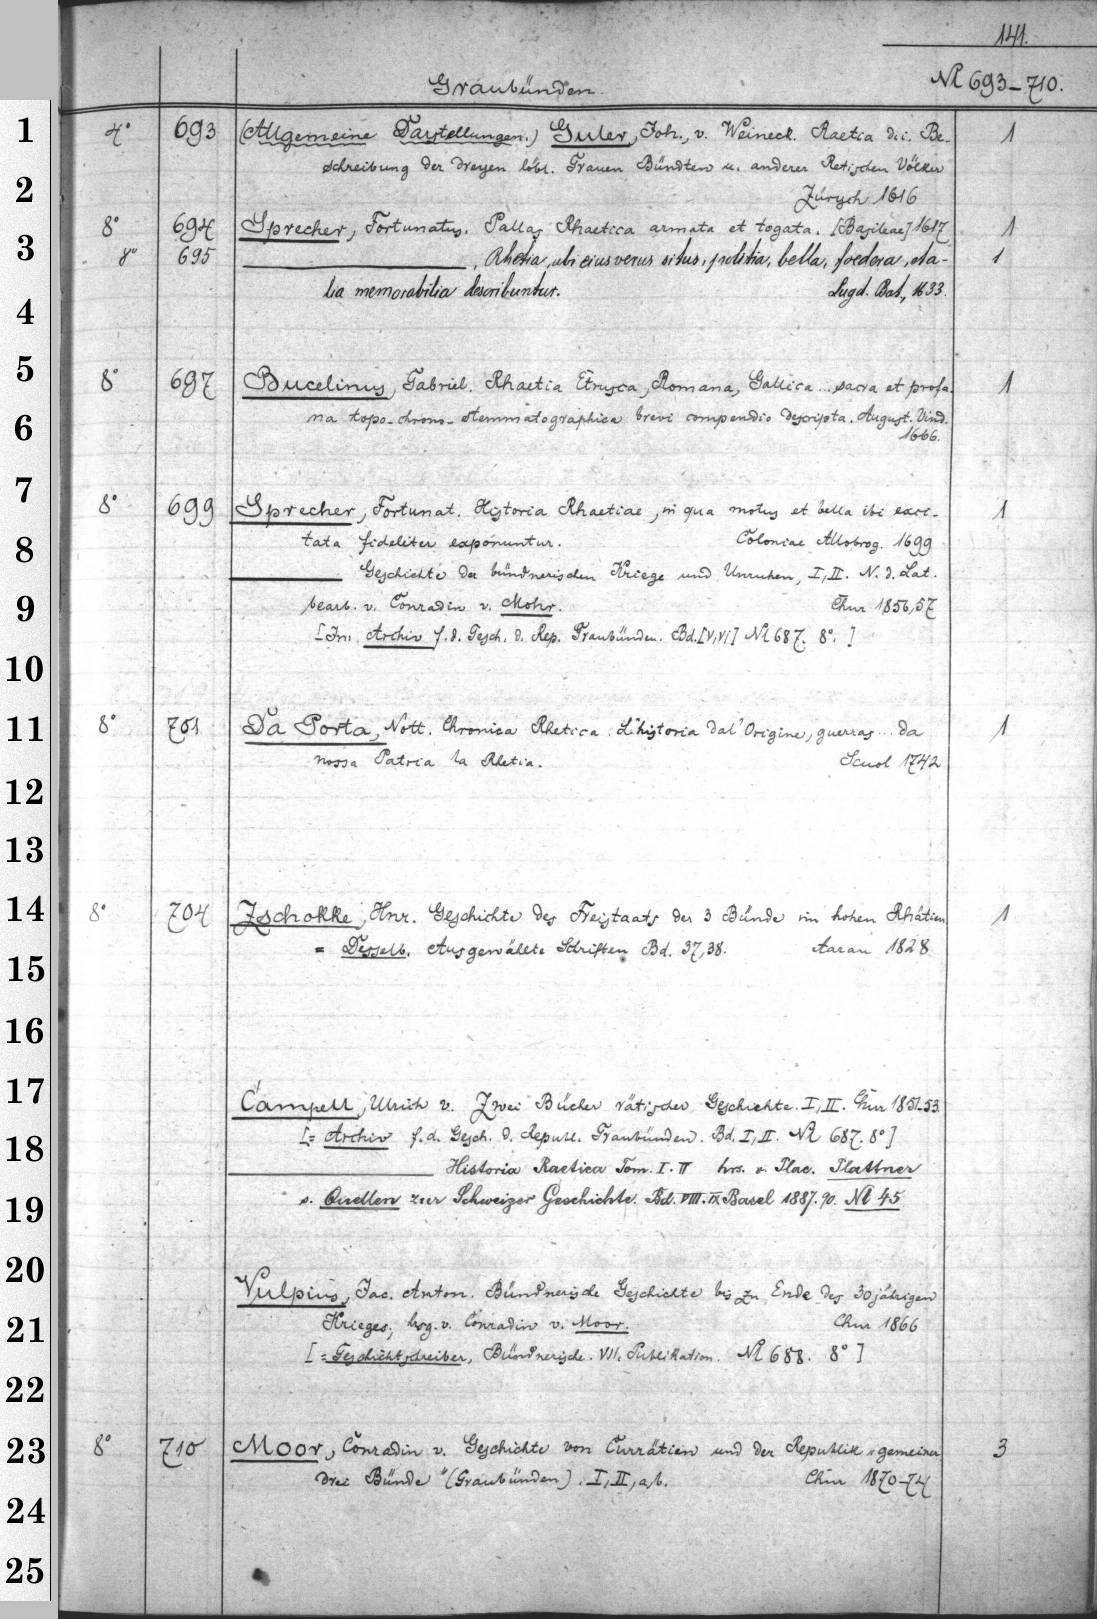 141.
Graubünden.
№ 693–710.
4° 693 (Allgemeine Darstellungen.) Guler, Joh., v. Weineck. Raetia d.i. Be- 1
schreibung der dreyen löbl. Grauen Bündten u. anderer Retischen Völker
Zürych 1616
8° 694 Sprecher, Fortunatus. Pallas Rhaetica armata et togata. [Basileae] 1617 1
8° 695 ________, Rhetia, ubi eius verus situs, politia, bella, foedera, et a- 1
lia memorabilia describuntur. Lugd. Bat., 1633.
8° 697 Bucelinus, Gabriel. Rhaetia Etrusca, Romana, Gallica... sacra et profa- 1
na topo-chrono-stemmatographica brevi compendio descripta. August. Vind.
1666.
8° 699 Sprecher, Fortunat. Historia Rhaetiae, in qua motus et bella ibi exci- 1
tata fideliter exponuntur. Coloniae Allobrog. 1699
________ Geschichte der bündnerischen Kriege und Unruhen, I, II. N. d. Lat.
bearb. v. Conradin v. Mohr. Chur 1856, 57
[In: Archiv f. d. Gesch. d. Rep. Graubünden. Bd. [V, VI] № 687. 8°.]
8° 701 Da Porta, Nott. Chronica Rhetica. L'historia dal' Origine, guerras... da 1
nossa Patria la Rhetia. Scuol 1742
8° 704 Zschokke, Hnr. Geschichte des Freistaats der 3 Bünde im hohen Rhätien 1
= Desselb. Ausgewählte Schriften Bd. 37, 38. Aarau 1828
Campell, Ulrich v. Zwei Bücher rätischer Geschichte. I, II. Chur 1851-53.
[= Archiv f. d. Gesch. d. Republ. Graubünden. Bd. I, II. № 687. 8°]
________ Historia Raetica Tom. I. II hrs. v. Plac. Plattner
s. Quellen zur Schweizer Geschichte. Bd. VIII. IX Basel 1887. 90. № 45
Vulpius, Jac. Anton. Bündnerische Geschichte bis zu Ende des 30jährigen
Krieges, hsg. v. Conradin v. Moor. Chur 1866
[= Geschichtschreiber, Bündnerische. VII. Publikation. № 688. 8°]
8° 710 Moor, Conradin v. Geschichte von Currätien und der Republik „gemeiner 3
drei Bünde" (Graubünden). I, II, a, b. Chur 1870-74
1
2
3
4
5
6
7
8
9
10
11
12
13
14
15
16
17
18
19
20
21
22
23
24
25